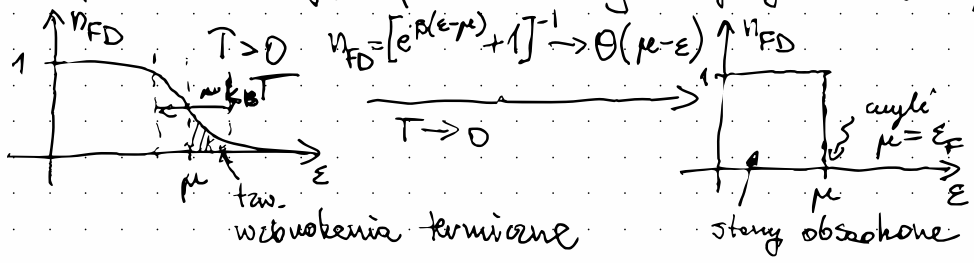 n_FD
T > 0
n_FD = [e^{β(ε-μ)} + 1]^{-1} → Θ(μ-ε)
n_FD
1
~ k_B T
T → 0
1
czyli
μ = ε_F
μ
ε
μ
ε
tzw.
wzbudzenia termiczne
stany obsadzone